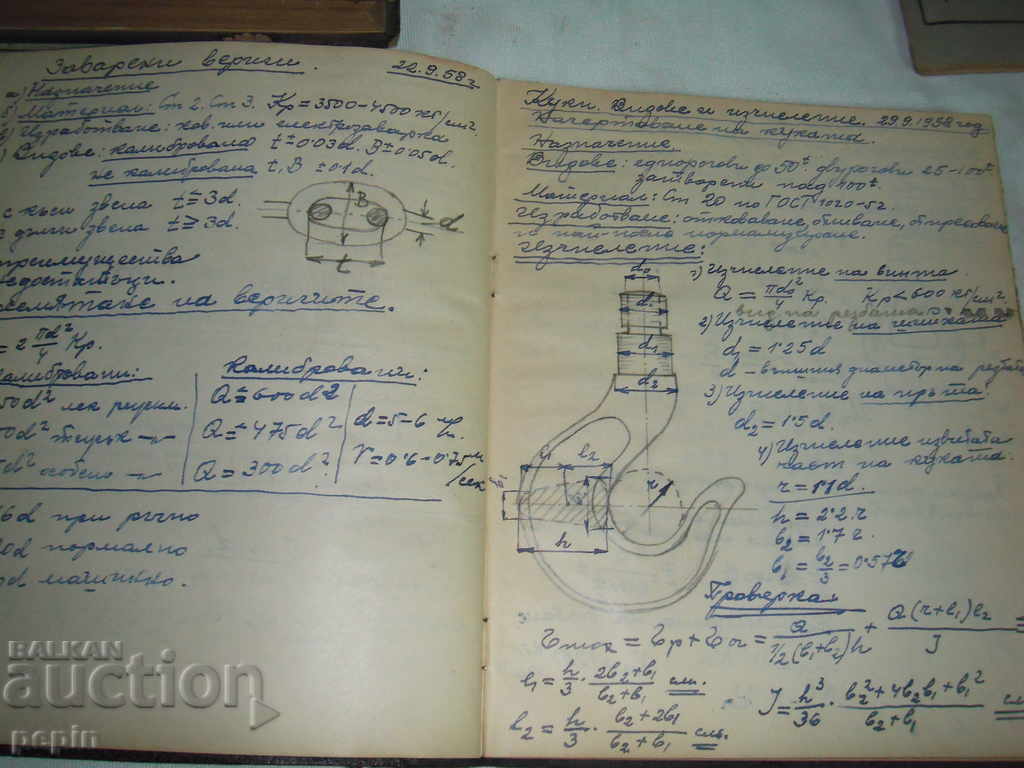 Заварени вериги. 22.9.58г
а) Назначение
б) Материал: Ст 2. Ст 3. Kр = 3500-4500 кг/см².
в) Изработване: ков. или електрозаварка
) Видове: калибровани t = ±0.03d. B = ±0.05d.
не калибровани t, B = ±0.1d
с къси звена t ≤ 3d.
дълги звена t ≥ 3d.
B
d
t
преимущества
недостатъци.
на веригите.
= 2 πd²/4 Kр.
калибровани:
50d² лек режим.
0d² тежък
d² особено
Калибровани:
Q = 600d²
Q = 475d²
Q = 300d²
d = 5-6
V = 0.6-0.75 м/сек
6d при ръчно
0d нормално
d машинно.
Куки. Видове и изчисление. 29.9.1958 год
Начертаване на куката.
Назначение.
Видове: еднорогови до 50t. двурогови 25-100t
затворени над 100t.
Материал: Ст 20 по ГОСТ 1020-52
Изработване: отковаване, отливане, отпресоване
и най-после нормализиране.
Изчисление:
d₀
d
d₁
d₂
1) Изчисление на винта.
Q = πd₀²/4 Kр. Kр < 600 кг/см².
вид на резбата
2) Изчисление на шийката
d₁ = 1.25d
d - външния диаметър на резбата
3) Изчисление на пръта.
d₂ = 1.5d.
4) Изчисление извитата
част на куката.
r = 1.1d.
h = 2.2.r
b₂ = 1.7r.
b₁ = b₂/3 = 0.57r
l₁ l₂
r
h
Проверка
max = + = Q/(1/2(b₁+b₂)h) + Q(r+l₁)l₂/J =
l₁ = h/3 · (2b₂+b₁)/(b₂+b₁) см.
l₂ = h/3 · (b₂+2b₁)/(b₂+b₁) см.
J = h³/36 · (b₂²+4b₂b₁+b₁²)/(b₂+b₁) см
BALKAN
auction
pepin